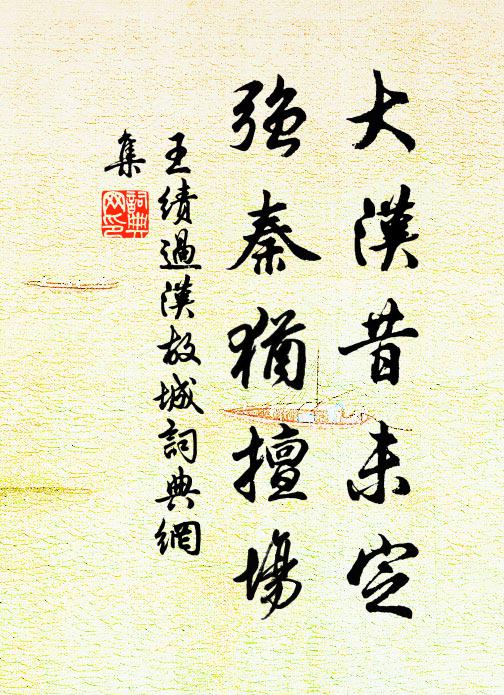 大漢昔未定
強秦猶擅場
王績過漢故城詞典網
集
詞典
网印